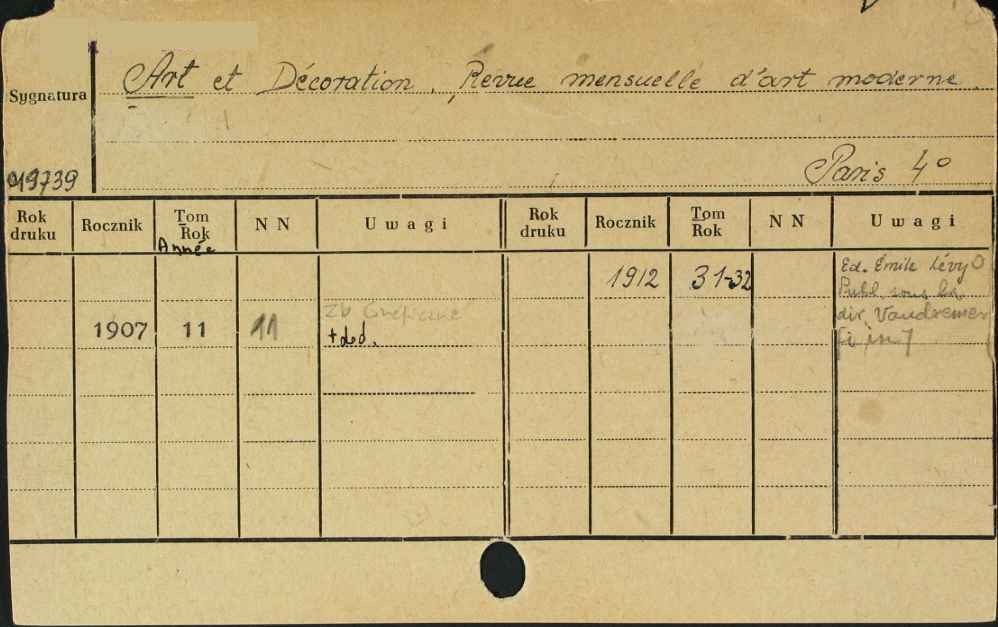 Art et Décoration. Revue mensuelle d'art moderne.
Sygnatura
Paris 4°
019739
Rok druku Rocznik Tom Rok NN Uwagi Rok druku Rocznik Tom Rok NN Uwagi
Année
1912 31-32 Ed. Émile Lévy
Publ. sous la
dir. Vaudremer
1907 11 11
+dod.